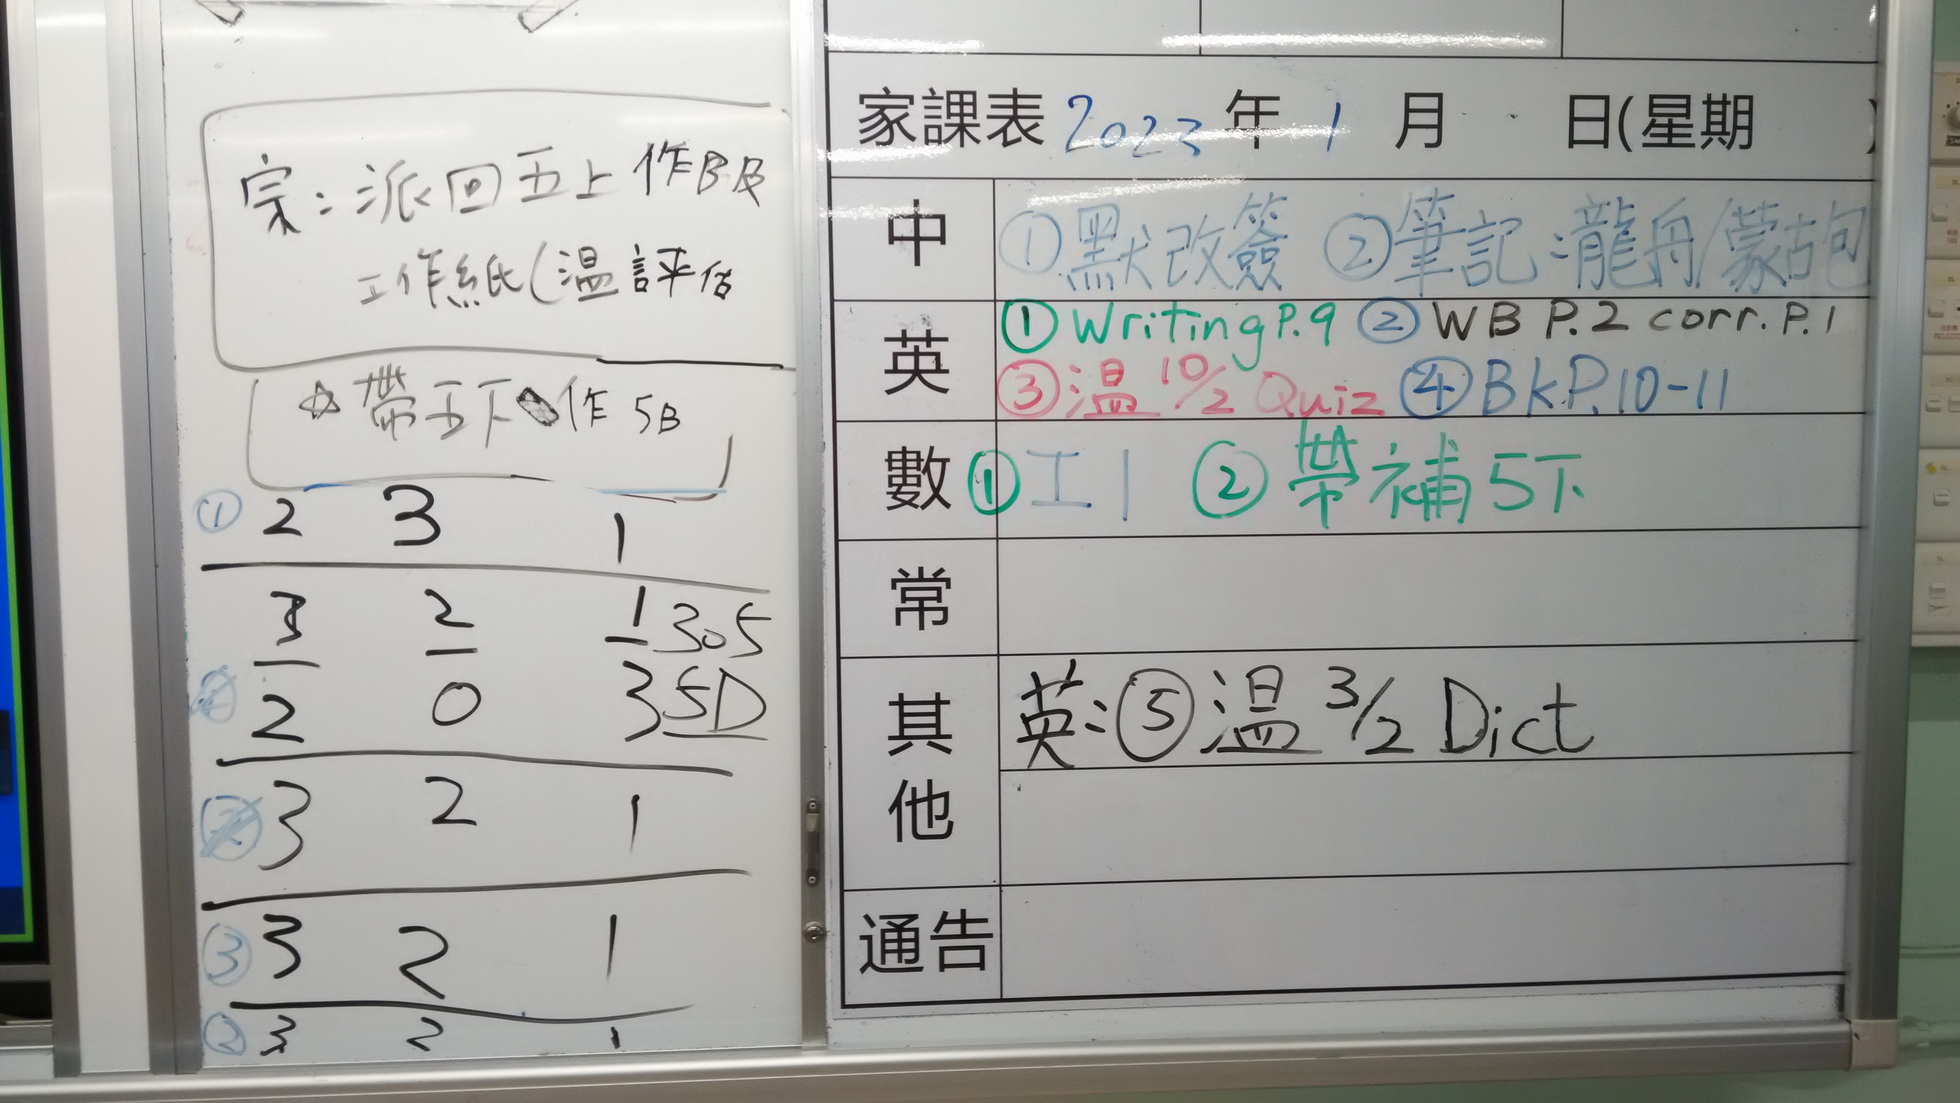 宗：派回五上作B及
工作紙(溫評估
☆帶五下作 5B
① 2 3 1
3 2 1 305
2 0 3 5D
3 2 1
③ 3 2 1
② 3 2 1
家課表 2023 年 1 月 日(星期 )
中 ①默改簽 ②筆記：龍舟/蒙古包
英 ① Writing P.9 ② WB P.2 corr. P.1
③溫 10/2 Quiz ④ Bk P.10-11
數 ①工1 ②帶補5下
常
其他 英：⑤溫 3/2 Dict
通告